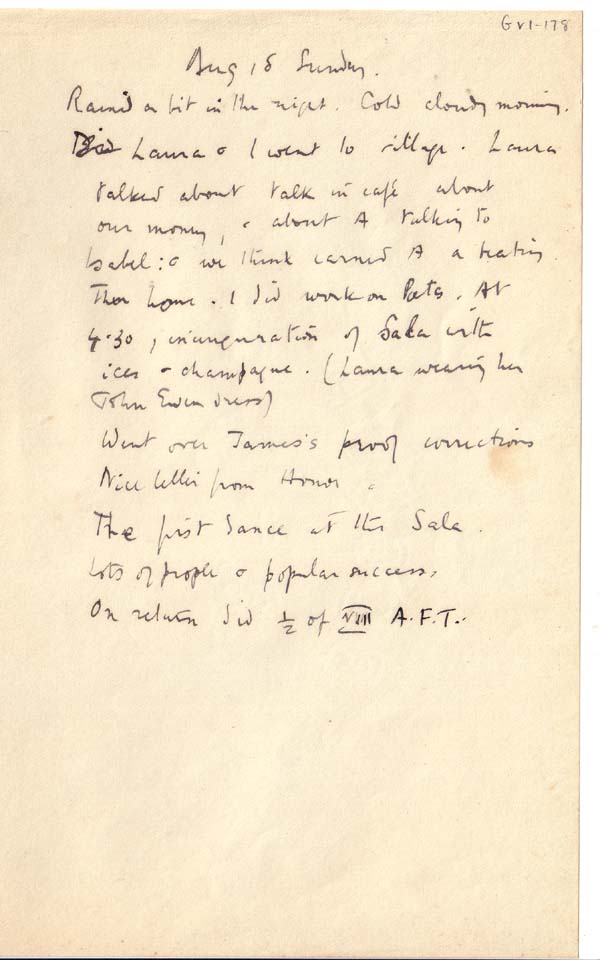 GV1-178
Aug 18 Sunday.
Rained a bit in the night. Cold cloudy morning.
Laura & I went to village. Laura
talked about talk in café about
our money, & about A talking to
Isabel: & we think earned A a beating.
Then home. I did work on. At
4.30, inauguration of Sala with
ices & champagne. (Laura wearing her
John Ewen dress)
Went over James's proof corrections
Nice letter from Honor.
The first dance at the Sala.
Lots of people & popular success.
On return did ½ of VIII A.F.T.